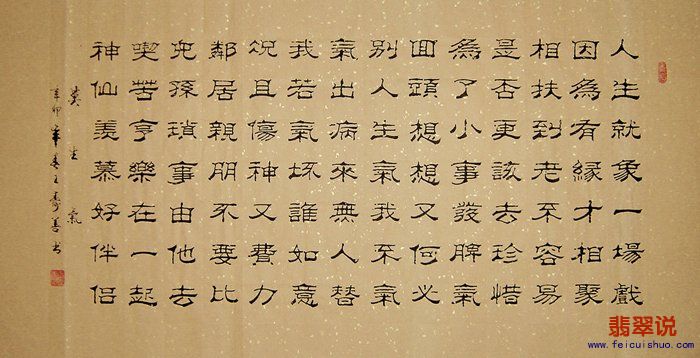 人生就象一場戲
因為有緣才相聚
相扶到老不容易
是否更該去珍惜
為了小事發脾氣
回頭想想又何必
別人生氣我不氣
氣出病來無人替
我若氣坏誰如意
況且傷神又費力
鄰居親朋不要比
兒孫瑣事由他去
喫苦享樂在一起
神仙羨慕好伴侶
莫生氣
辛卯年春王壽善书
翡翠说
www.feicuishuo.com